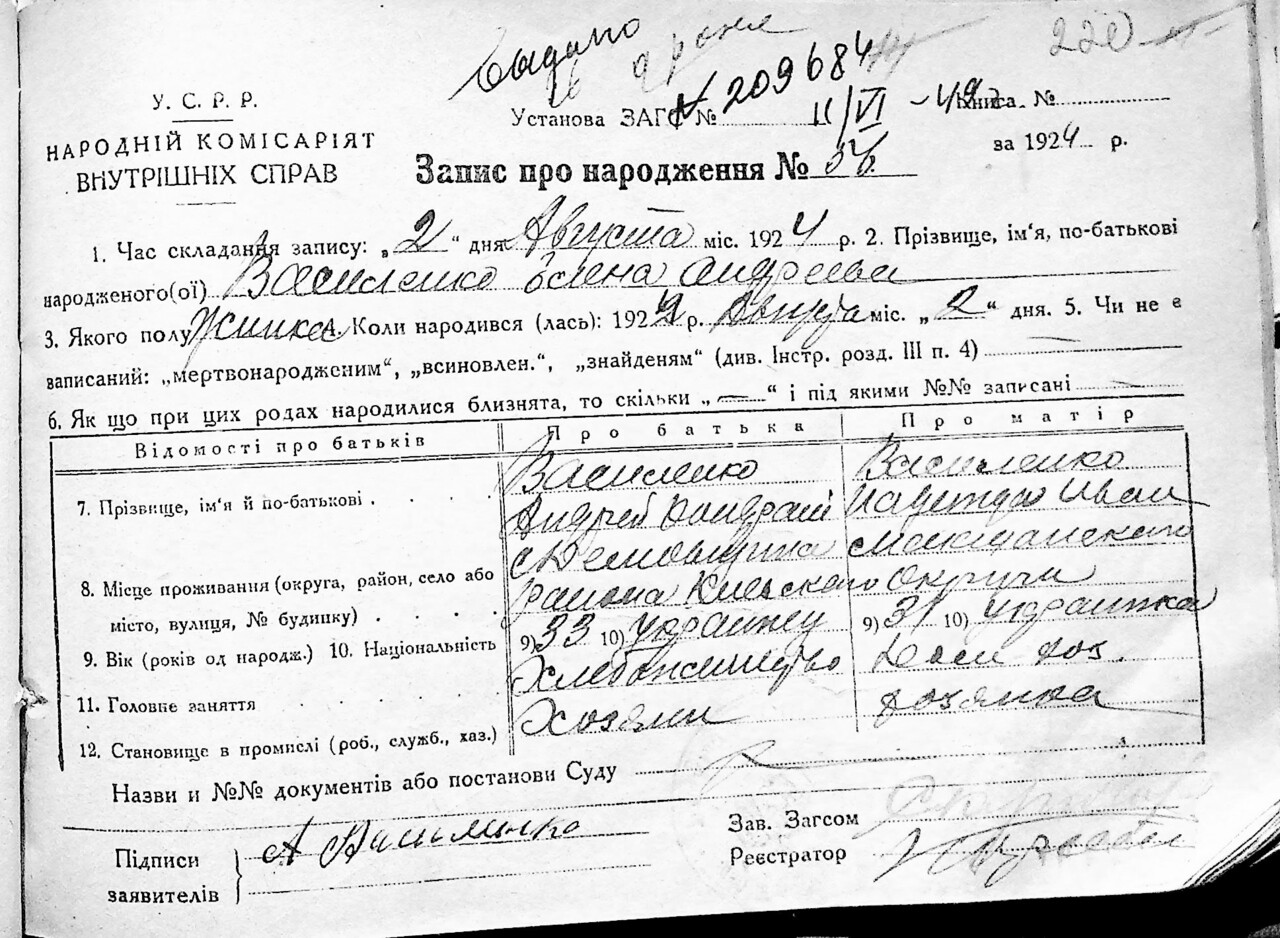 Выдано
220
У. С. Р. Р.
НАРОДНІЙ КОМІСАРІЯТ
ВНУТРІШНІХ СПРАВ
Установа ЗАГС № 209684 11/VI -49 Книга №
за 1924 р.
Запис про народження № 36.
1. Час складання запису: „2" дня Августа міс. 1924 р. 2. Прізвище, ім'я, по-батькові
народженого(ої) Василенко Елена Андреева
3. Якого полу Жинка 4. Коли народився (лась): 1924 р. Августа міс. „2" дня. 5. Чи не є
записаний: „мертвонародженим", „всиновлен.", „знайденям" (див. Інстр. розд. III п. 4)
6. Як що при цих родах народилися близнята, то скільки „—" і під якими №№ записані —
Відомості про батьків Про батька Про матір
7. Прізвище, ім'я й по-батькові . Василенко Василенко
Андрей Кондрат Надежда Иван
8. Місце проживання (округа, район, село або
місто, вулиця, № будинку) . . .
района Киевского Округи
9. Вік (років од народж.) 10. Національність 9) 33 10) украинец 9) 31 10) украинка
11. Головне заняття . . . . Хлебопашество Дом хоз.
12. Становище в промислі (роб., служб., хаз.) Хозяин хозяика
Назви и №№ документів або постанови Суду
Підписи
заявителів
А Василенко
Зав. Загсом
Реєстратор